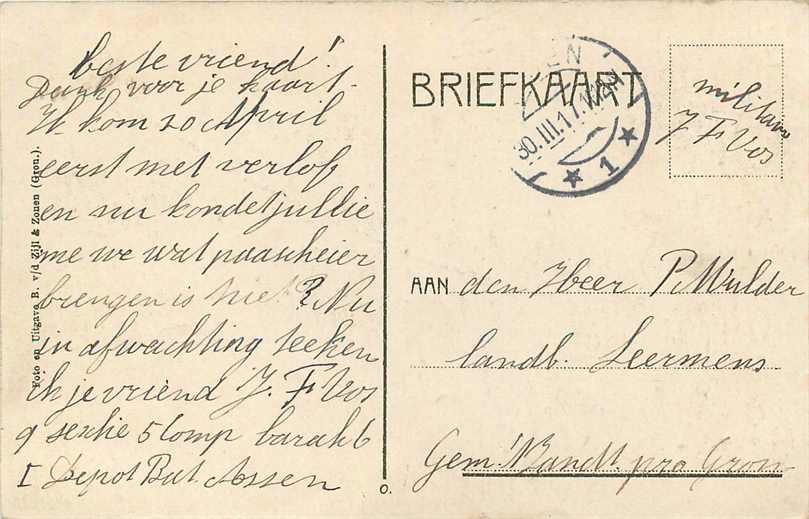 beste vriend!
Dank voor je kaart.
Ik kom 20 April
eerst met verlof
en nu kondet jullie
me we wat paascheier
brengen is niet? Nu
in afwachting teeken
ik je vriend J. F Vos
9 sectie 5 Comp barak 6
I Depot Bat Assen
Foto en Uitgave B. v/d Zijl & Zonen (Gron.).
O.
BRIEFKAART
EN
30.III.17.
1
militair
J F Vos
AAN den Heer P. Mulder
landb. Leermens
Gem. 't Zandt. pro Gron